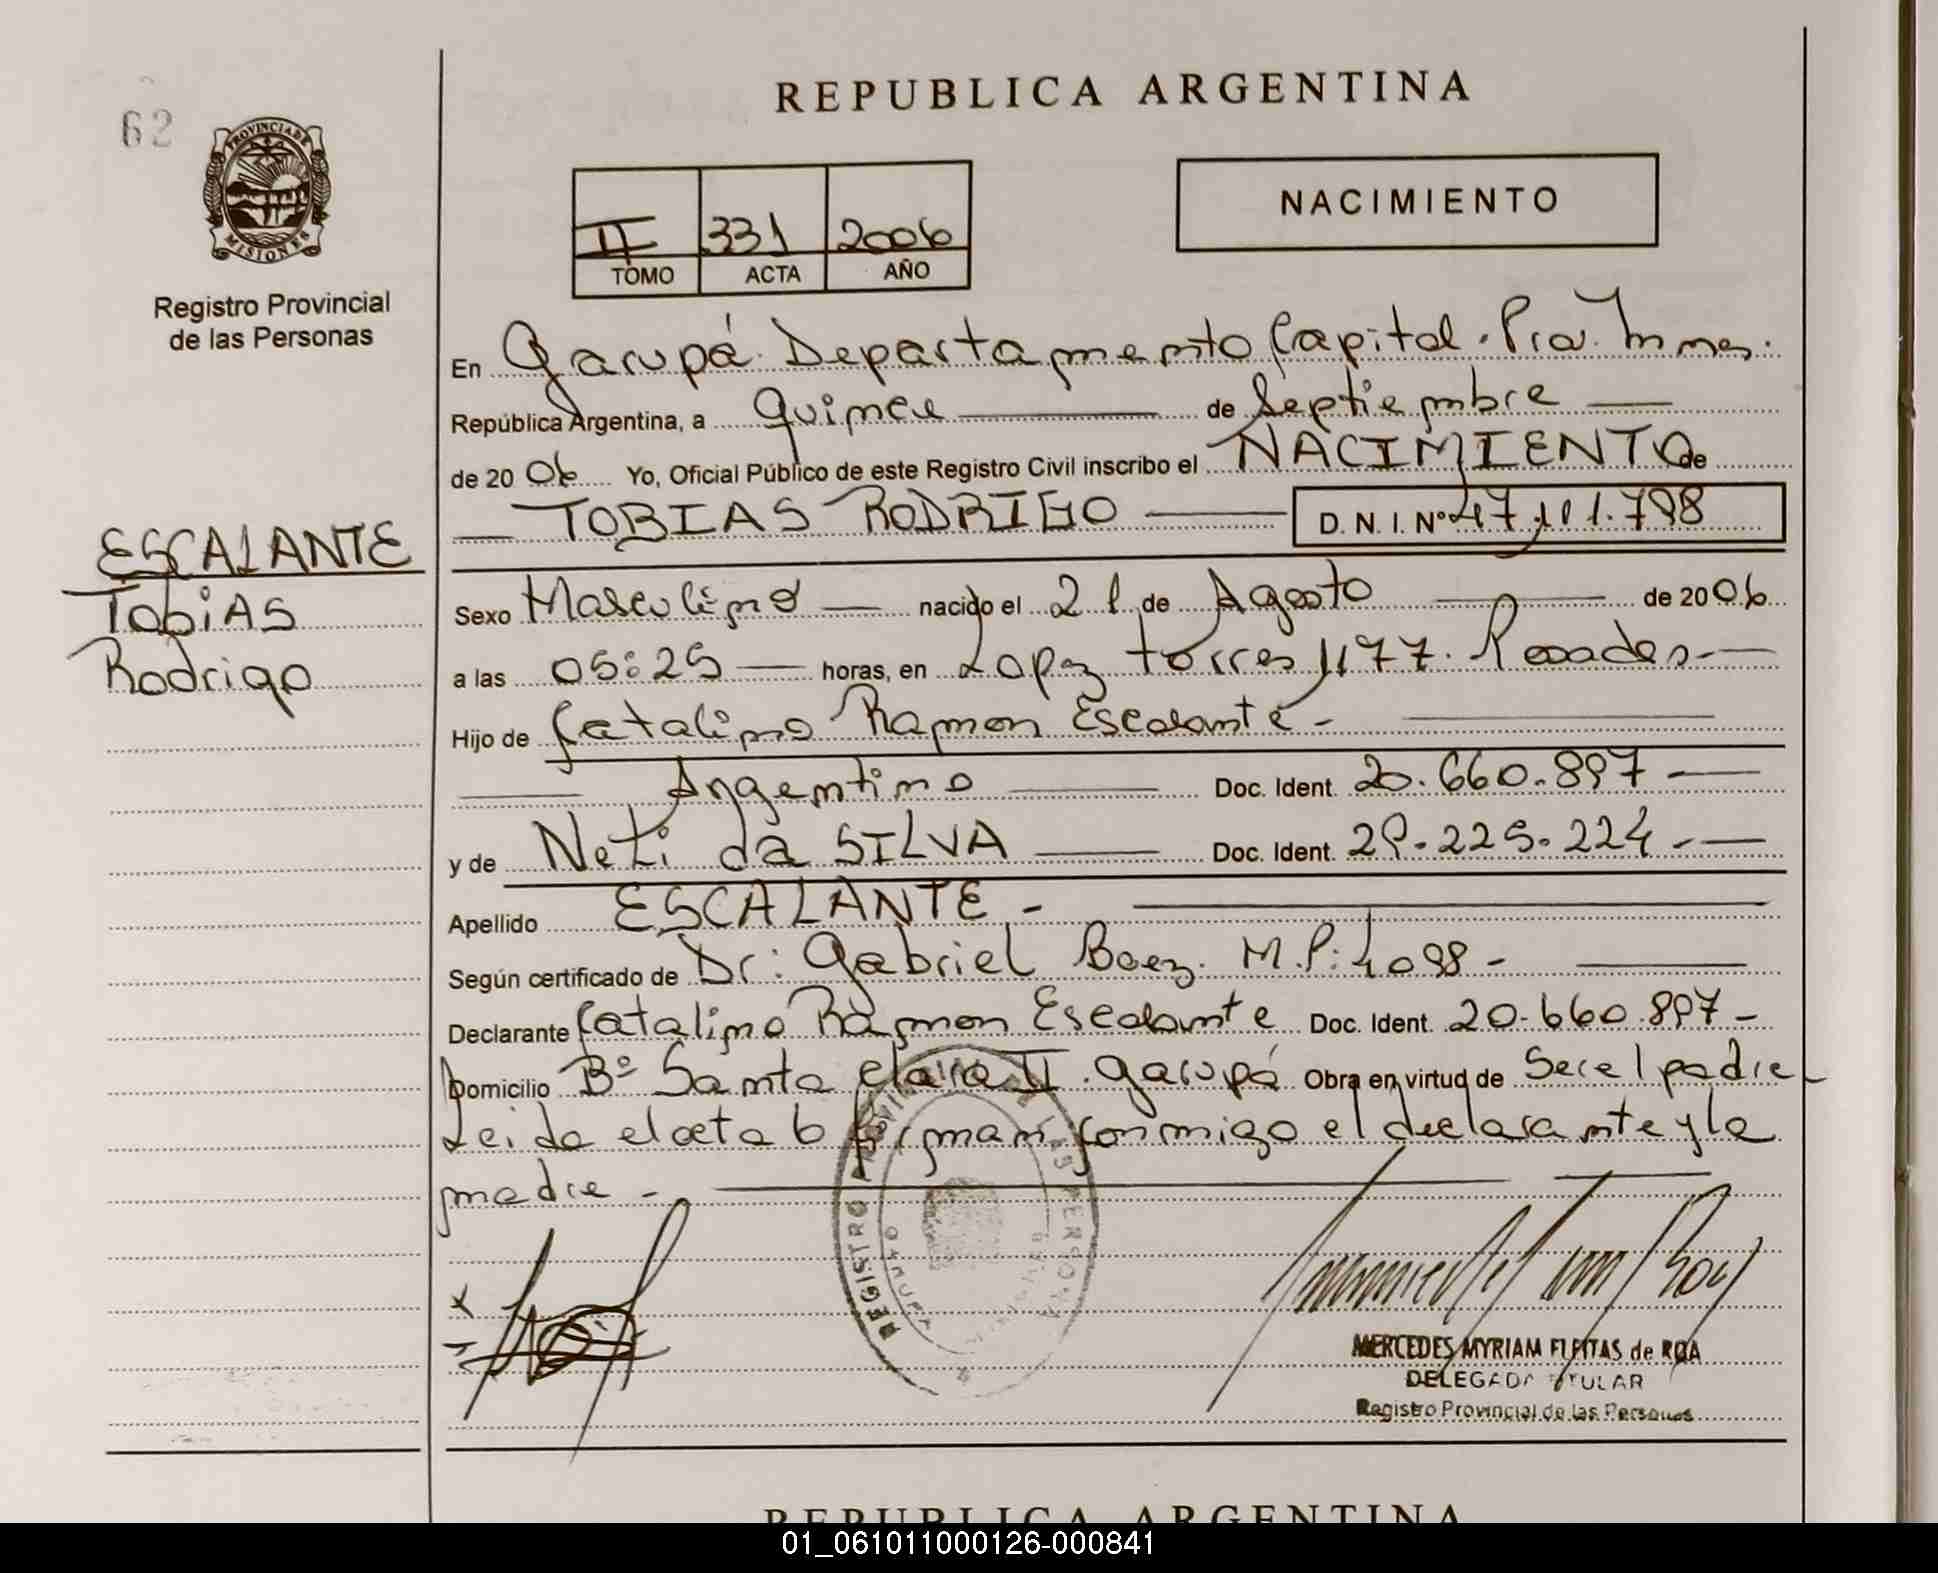 62
PROVINCIA DE
MISIONES
Registro Provincial
de las Personas
REPUBLICA ARGENTINA
II 331 2006
TOMO ACTA AÑO
NACIMIENTO
En Garupá. Departamento Capital. Prov. Mnes.
República Argentina, a Quince de Septiembre
de 20 06 Yo, Oficial Público de este Registro Civil inscribo el NACIMIENTO de
TOBIAS RODRIGO D. N. I. Nº 47.101.798
ESCALANTE
Tobias
Rodrigo
Sexo Masculino nacido el 21 de Agosto de 20 06
a las 05:25 horas, en Lopez Torres 1177. Posadas.
Hijo de Catalino Ramon Escalante -
Argentino Doc. Ident. 20.660.897 -
y de Neti da SILVA Doc. Ident. 29.225.224.-
Apellido ESCALANTE -
Según certificado de Dr: Gabriel Baez. M.P: 4098 -
Declarante Catalino Ramon Escalante Doc. Ident. 20.660.897 -
Domicilio Bº Santa Clara II. Garupá Obra en virtud de Ser el padre
Leida el acta firman conmigo el declarante y la
madre -
REGISTRO PROVINCIAL DE LAS PERSONAS
GARUPA
MERCEDES MYRIAM FLEITAS de ROA
DELEGADA TITULAR
Registro Provincial de las Personas
REPUBLICA ARGENTINA
01_061011000126-000841